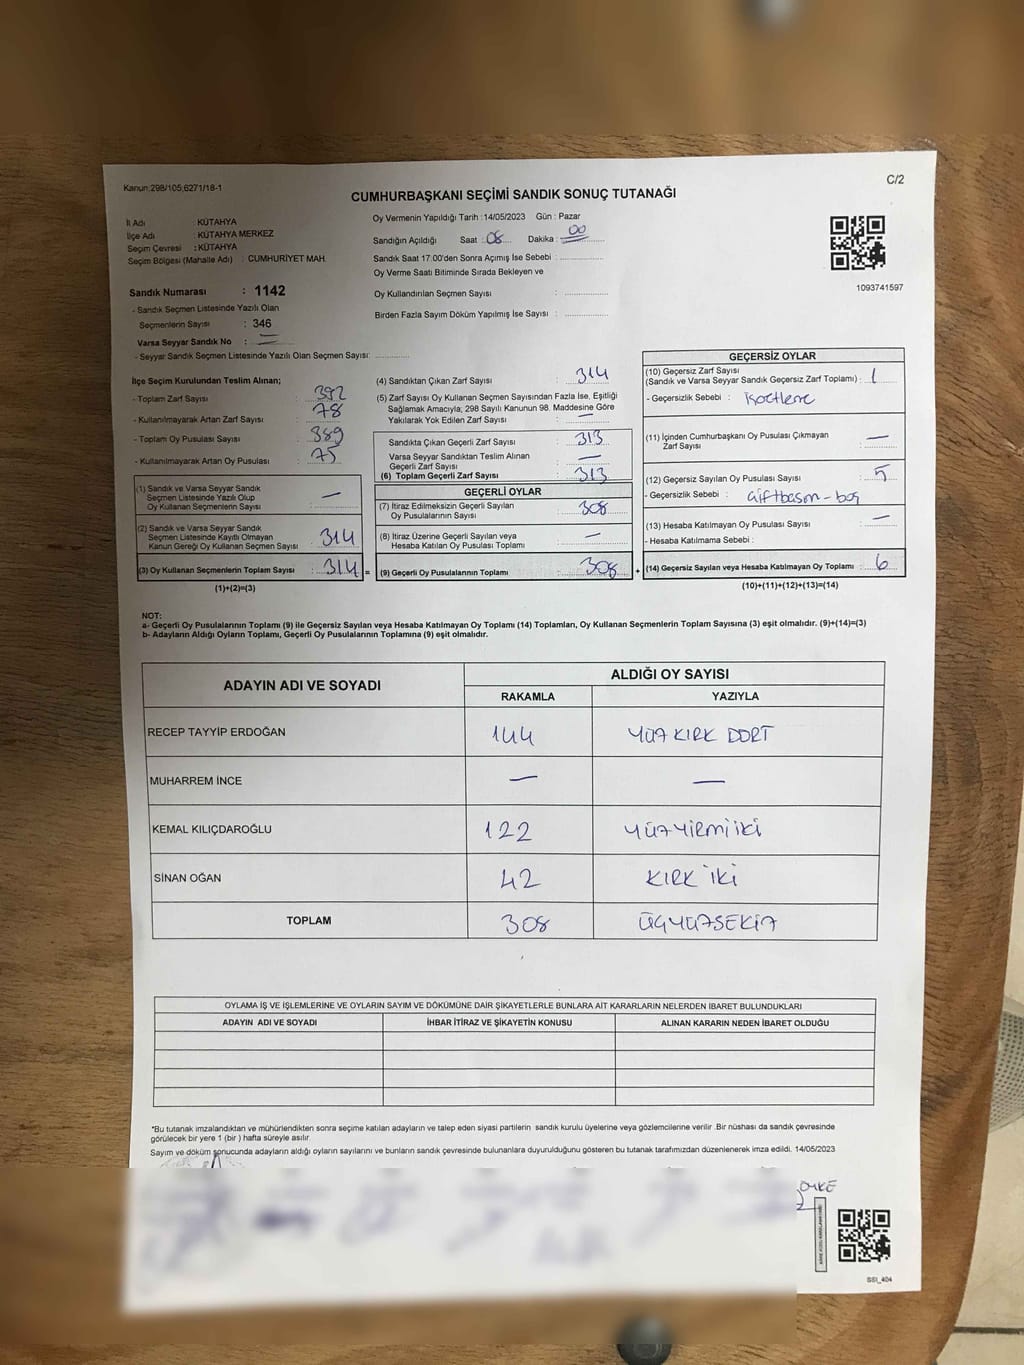 Kanun:298/105;6271/18-1
C/2
CUMHURBAŞKANI SEÇİMİ SANDIK SONUÇ TUTANAĞI
İl Adı : KÜTAHYA
İlçe Adı : KÜTAHYA MERKEZ
Seçim Çevresi : KÜTAHYA
Seçim Bölgesi (Mahalle Adı) : CUMHURİYET MAH.
Sandık Numarası : 1142
- Sandık Seçmen Listesinde Yazılı Olan
Seçmenlerin Sayısı : 346
Varsa Seyyar Sandık No : —
- Seyyar Sandık Seçmen Listesinde Yazılı Olan Seçmen Sayısı:
Oy Vermenin Yapıldığı Tarih :14/05/2023 Gün : Pazar
Sandığın Açıldığı Saat : 08 Dakika : 00
Sandık Saat 17:00'den Sonra Açımış İse Sebebi :
Oy Verme Saati Bitiminde Sırada Bekleyen ve
Oy Kullandırılan Seçmen Sayısı :
Birden Fazla Sayım Döküm Yapılmış İse Sayısı :
1093741597
İlçe Seçim Kurulundan Teslim Alınan;
- Toplam Zarf Sayısı : 392
- Kullanılmayarak Artan Zarf Sayısı : 78
- Toplam Oy Pusulası Sayısı : 389
- Kullanılmayarak Artan Oy Pusulası : 75
(1) Sandık ve Varsa Seyyar Sandık
Seçmen Listesinde Yazılı Olup
Oy Kullanan Seçmenlerin Sayısı : —
(2) Sandık ve Varsa Seyyar Sandık
Seçmen Listesinde Kayıtlı Olmayan
Kanun Gereği Oy Kullanan Seçmen Sayısı : 314
(3) Oy Kullanan Seçmenlerin Toplam Sayısı : 314 =
(1)+(2)=(3)
(4) Sandıktan Çıkan Zarf Sayısı : 314
(5) Zarf Sayısı Oy Kullanan Seçmen Sayısından Fazla İse, Eşitliği
Sağlamak Amacıyla, 298 Sayılı Kanunun 98. Maddesine Göre
Yakılarak Yok Edilen Zarf Sayısı : —
Sandıkta Çıkan Geçerli Zarf Sayısı : 313
Varsa Seyyar Sandıktan Teslim Alınan
Geçerli Zarf Sayısı : —
(6) Toplam Geçerli Zarf Sayısı : 313
GEÇERLİ OYLAR
(7) İtiraz Edilmeksizin Geçerli Sayılan
Oy Pusulalarının Sayısı : 308
(8) İtiraz Üzerine Geçerli Sayılan veya
Hesaba Katılan Oy Pusulası Toplamı : —
(9) Geçerli Oy Pusulalarının Toplamı : 308 +
GEÇERSİZ OYLAR
(10) Geçersiz Zarf Sayısı
(Sandık ve Varsa Seyyar Sandık Geçersiz Zarf Toplamı) : 1
- Geçersizlik Sebebi :
(11) İçinden Cumhurbaşkanı Oy Pusulası Çıkmayan
Zarf Sayısı : —
(12) Geçersiz Sayılan Oy Pusulası Sayısı : 5
- Geçersizlik Sebebi : çiftbasım - boş
(13) Hesaba Katılmayan Oy Pusulası Sayısı : —
- Hesaba Katılmama Sebebi :
(14) Geçersiz Sayılan veya Hesaba Katılmayan Oy Toplamı : 6
(10)+(11)+(12)+(13)=(14)
NOT:
a- Geçerli Oy Pusulalarının Toplamı (9) ile Geçersiz Sayılan veya Hesaba Katılmayan Oy Toplamı (14) Toplamları, Oy Kullanan Seçmenlerin Toplam Sayısına (3) eşit olmalıdır. (9)+(14)=(3)
b- Adayların Aldığı Oyların Toplamı, Geçerli Oy Pusulalarının Toplamına (9) eşit olmalıdır.
ADAYIN ADI VE SOYADI ALDIĞI OY SAYISI
RAKAMLA YAZIYLA
RECEP TAYYİP ERDOĞAN 144 YÜZ KIRK DÖRT
MUHARREM İNCE — —
KEMAL KILIÇDAROĞLU 122 YÜZ YİRMİ İKİ
SİNAN OĞAN 42 KIRK İKİ
TOPLAM 308 ÜÇYÜZSEKİZ
OYLAMA İŞ VE İŞLEMLERİNE VE OYLARIN SAYIM VE DÖKÜMÜNE DAİR ŞİKAYETLERLE BUNLARA AİT KARARLARIN NELERDEN İBARET BULUNDUKLARI
ADAYIN ADI VE SOYADI İHBAR İTİRAZ VE ŞİKAYETİN KONUSU ALINAN KARARIN NEDEN İBARET OLDUĞU
*Bu tutanak imzalandıktan ve mühürlendikten sonra seçime katılan adayların ve talep eden siyasi partilerin sandık kurulu üyelerine veya gözlemcilerine verilir .Bir nüshası da sandık çevresinde
görülecek bir yere 1 (bir ) hafta süreyle asılır.
Sayım ve döküm sonucunda adayların aldığı oyların sayılarını ve bunların sandık çevresinde bulunanlara duyurulduğunu gösteren bu tutanak tarafımızdan düzenlenerek imza edildi. 14/05/2023
SSİ_404